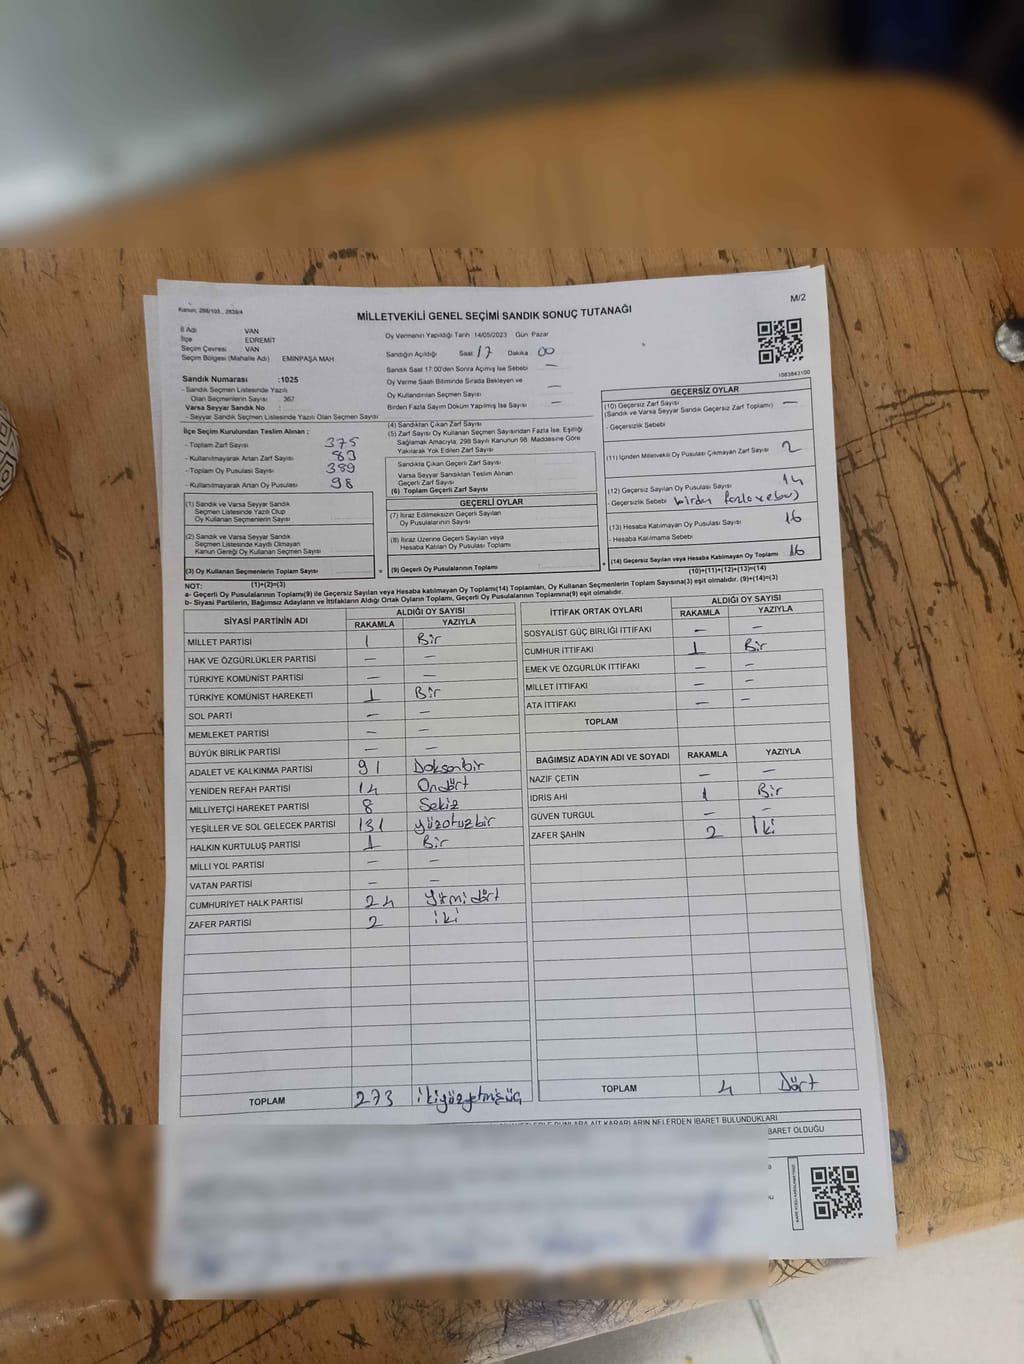 Kanun: 298/103 , 2839/4
M/2
MİLLETVEKİLİ GENEL SEÇİMİ SANDIK SONUÇ TUTANAĞI
İl Adı : VAN
İlçe : EDREMİT
Seçim Çevresi : VAN
Seçim Bölgesi (Mahalle Adı) EMİNPAŞA MAH.
Oy Vermenin Yapıldığı Tarih :14/05/2023 Gün: Pazar
Sandığın Açıldığı Saat: 17 Dakika 00
Sandık Saat 17:00'den Sonra Açılmış İse Sebebi —
Oy Verme Saati Bitiminde Sırada Bekleyen ve
Oy Kullandırılan Seçmen Sayısı —
Birden Fazla Sayım Döküm Yapılmış İse Sayısı —
1083843100
Sandık Numarası :1025
- Sandık Seçmen Listesinde Yazılı
Olan Seçmenlerin Sayısı 367
Varsa Seyyar Sandık No :
- Seyyar Sandık Seçmen Listesinde Yazılı Olan Seçmen Sayısı
İlçe Seçim Kurulundan Teslim Alınan :
- Toplam Zarf Sayısı 375
- Kullanılmayarak Artan Zarf Sayısı 83
- Toplam Oy Pusulası Sayısı 389
- Kullanılmayarak Artan Oy Pusulası 98
(1) Sandık ve Varsa Seyyar Sandık
Seçmen Listesinde Yazılı Olup
Oy Kullanan Seçmenlerin Sayısı
(2) Sandık ve Varsa Seyyar Sandık
Seçmen Listesinde Kayıtlı Olmayan
Kanun Gereği Oy Kullanan Seçmen Sayısı
(3) Oy Kullanan Seçmenlerin Toplam Sayısı
(1)+(2)=(3)
(4) Sandıktan Çıkan Zarf Sayısı
(5) Zarf Sayısı Oy Kullanan Seçmen Sayısından Fazla İse; Eşitliği
Sağlamak Amacıyla; 298 Sayılı Kanunun 98. Maddesine Göre
Yakılarak Yok Edilen Zarf Sayısı
Sandıkta Çıkan Geçerli Zarf Sayısı
Varsa Seyyar Sandıktan Teslim Alınan
Geçerli Zarf Sayısı
(6) Toplam Geçerli Zarf Sayısı
GEÇERLİ OYLAR
(7) İtiraz Edilmeksizin Geçerli Sayılan
Oy Pusulalarının Sayısı
(8) İtiraz Üzerine Geçerli Sayılan veya
Hesaba Katılan Oy Pusulası Toplamı
= (9) Geçerli Oy Pusulalarının Toplamı +
GEÇERSİZ OYLAR
(10) Geçersiz Zarf Sayısı —
(Sandık ve Varsa Seyyar Sandık Geçersiz Zarf Toplamı)
- Geçersizlik Sebebi
(11) İçinden Milletvekili Oy Pusulası Çıkmayan Zarf Sayısı 2
(12) Geçersiz Sayılan Oy Pusulası Sayısı 14
- Geçersizlik Sebebi birden fazla
(13) Hesaba Katılmayan Oy Pusulası Sayısı 16
- Hesaba Katılmama Sebebi
(14) Geçersiz Sayılan veya Hesaba Katılmayan Oy Toplamı 16
(10)+(11)+(12)+(13)=(14)
NOT:
a- Geçerli Oy Pusulalarının Toplamı(9) ile Geçersiz Sayılan veya Hesaba katılmayan Oy Toplamı(14) Toplamları, Oy Kullanan Seçmenlerin Toplam Sayısına(3) eşit olmalıdır. (9)+(14)=(3)
b- Siyasi Partilerin, Bağımsız Adayların ve İttifakların Aldığı Ortak Oyların Toplamı, Geçerli Oy Pusulalarının Toplamına(9) eşit olmalıdır.
SİYASİ PARTİNİN ADI ALDIĞI OY SAYISI
RAKAMLA YAZIYLA
MİLLET PARTİSİ 1 Bir
HAK VE ÖZGÜRLÜKLER PARTİSİ — —
TÜRKİYE KOMÜNİST PARTİSİ — —
TÜRKİYE KOMÜNİST HAREKETİ 1 Bir
SOL PARTİ — —
MEMLEKET PARTİSİ — —
BÜYÜK BİRLİK PARTİSİ — —
ADALET VE KALKINMA PARTİSİ 91 Doksanbir
YENİDEN REFAH PARTİSİ 14 Ondört
MİLLİYETÇİ HAREKET PARTİSİ 8 Sekiz
YEŞİLLER VE SOL GELECEK PARTİSİ 131 yüzotuzbir
HALKIN KURTULUŞ PARTİSİ 1 Bir
MİLLİ YOL PARTİSİ — —
VATAN PARTİSİ — —
CUMHURİYET HALK PARTİSİ 24 Yirmi dört
ZAFER PARTİSİ 2 iki
TOPLAM 273 ikiyüzyetmişüç
İTTİFAK ORTAK OYLARI ALDIĞI OY SAYISI
RAKAMLA YAZIYLA
SOSYALİST GÜÇ BİRLİĞİ İTTİFAKI — —
CUMHUR İTTİFAKI 1 Bir
EMEK VE ÖZGÜRLÜK İTTİFAKI — —
MİLLET İTTİFAKI — —
ATA İTTİFAKI — —
TOPLAM
BAĞIMSIZ ADAYIN ADI VE SOYADI RAKAMLA YAZIYLA
NAZİF ÇETİN — —
İDRİS AHİ 1 Bir
GÜVEN TURGUL — —
ZAFER ŞAHİN 2 İki
TOPLAM 4 Dört
KARARLARIN NELERDEN İBARET BULUNDUKLARI
BARET OLDUĞU